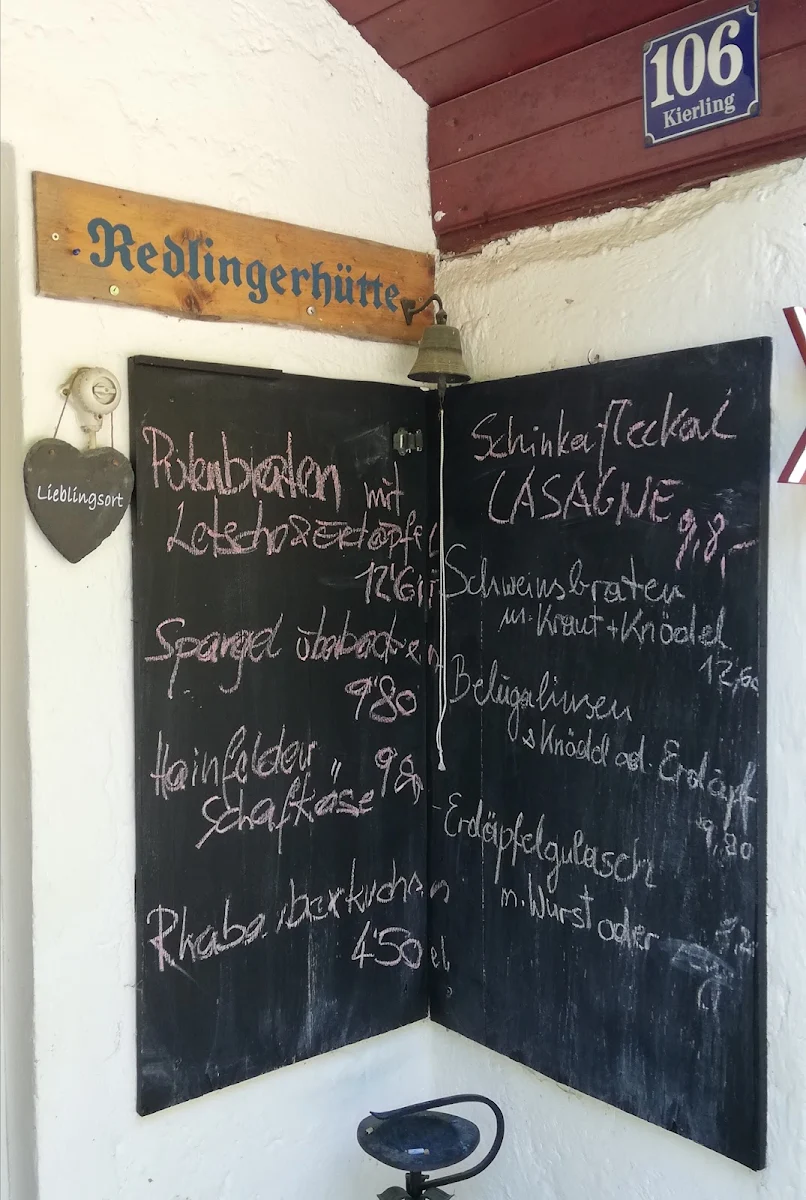 106
Kierling
Redlingerhütte
Lieblingsort
Putenbraten mit
Letscho & Erdäpfel
Spargel überbacken
9'80
Hainfelder
Schafkäse
Rhabarberkuchen
4'50
Schinkenfleckerl
LASAGNE
9,8,-
Schweinsbraten
m. Kraut + Knödel
Belugalinsen
& Knödel od. Erdäpf
9,80
Erdäpfelgulasch
m. Wurst oder